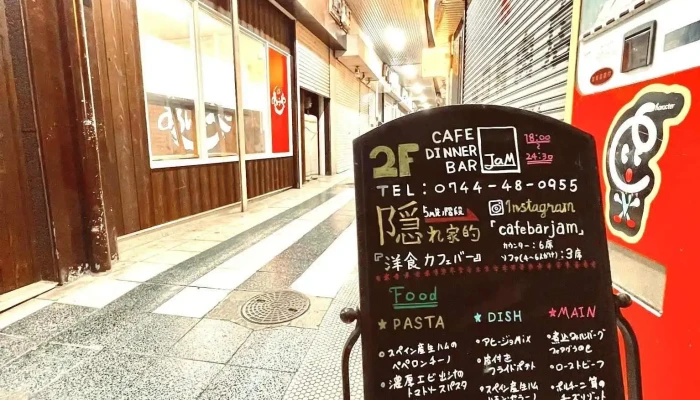 CAFE
2F DINNER JaM 18:00
BAR 24:30
TEL:0744-48-0955
隠れ家的 5m先階段 Instagram
「cafebarjam」
カウンター:6席
『洋食カフェバー』 :3席
Food
★PASTA ★DISH ★MAIN
スペイン産生ハムの ペペロンチーノ
濃厚エビ出汁の トマトソースパスタ
アヒージョMiX
皮付き フライドポテト
スペイン産生ハム
煮込みハンバーグ
ローストビーフ
ポルチーニ茸の チーズリゾット